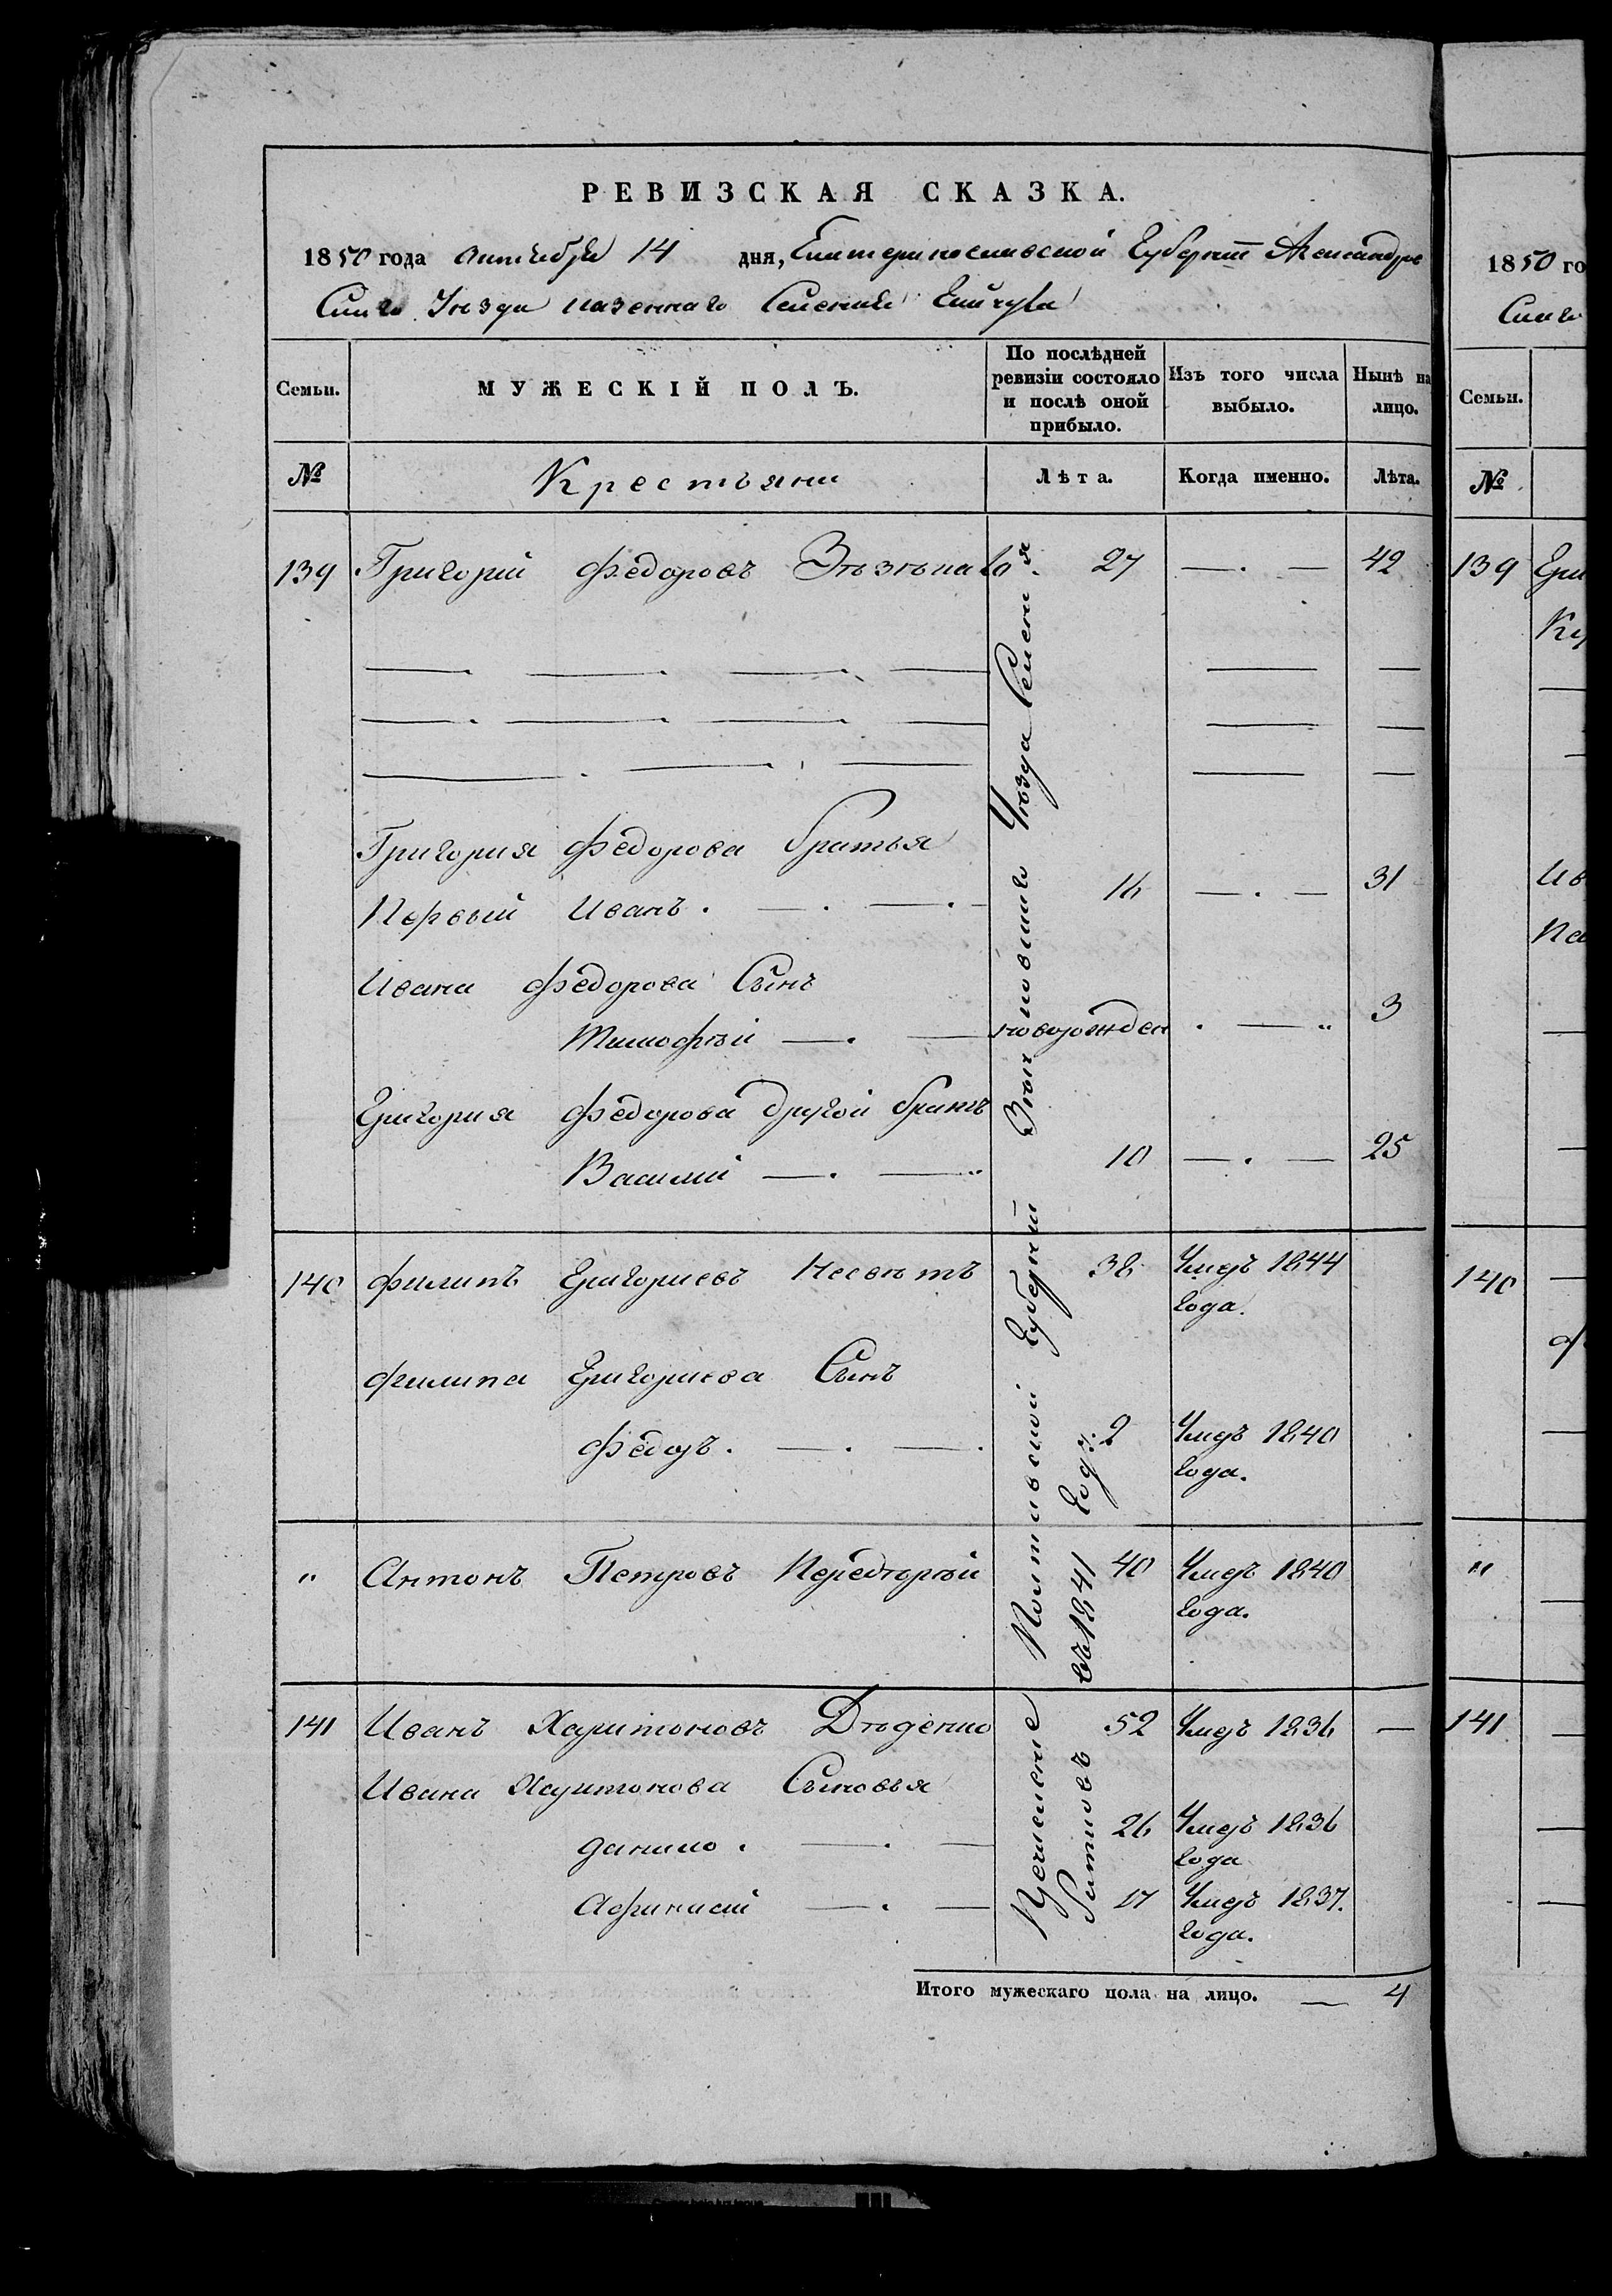 РЕВИЗСКАЯ СКАЗКА.
1850 года октября 14 дня, Екатеринославской Губерніи Александров
Скаго Уѣзда казеннаго Селенія
Семьи. МУЖЕСКІЙ ПОЛЪ. По послѣдней ревизіи состояло и послѣ оной прибыло. Изъ того числа выбыло. Нынѣ на лицо.
№ Крестьяни Лѣта. Когда именно. Лѣта.
139 Григорій Федоровъ 27 — . — 42
Григория Федорова братья
Первый Иванъ . — . — . — 16 — . — 31
Ивана Федорова Сынъ
Тимофѣй — . — новорожден . — „ 3
Григория Федорова другой братъ
Василій — . — „ 10 — . — 25
140 Филипъ Григориевъ Несвѣтъ 38 Умеръ 1844
года.
Филипа Григориева Сынъ
Федоръ . — . — . 2 Умеръ 1840
года.
„ Антонъ Петровъ 40 Умеръ 1840
года.
141 Иванъ Харитоновъ Дѣденко 52 Умеръ 1836 —
Ивана Харитонова Сыновья
Данило . — . — 26 Умеръ 1836
года
Афанасій — . — 17 Умеръ 1837.
года.
Причисление Полтавской Губерніи Зѣньковскаго Уѣзда Селения
въ 1841 год:
Итого мужескаго пола на лицо. — 4
1850 го
Скаго
Семьи.
№
139 Гри
Ив
140
„
141